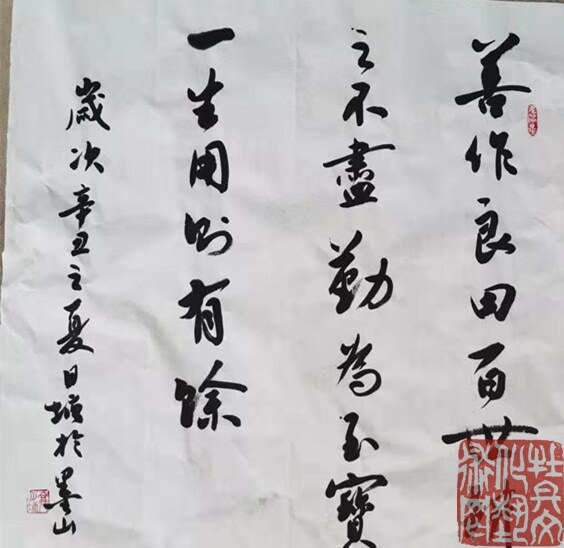 善作良田百世
之不盡勤為至寶
一生用則有餘
歲次辛丑之夏日於墨山